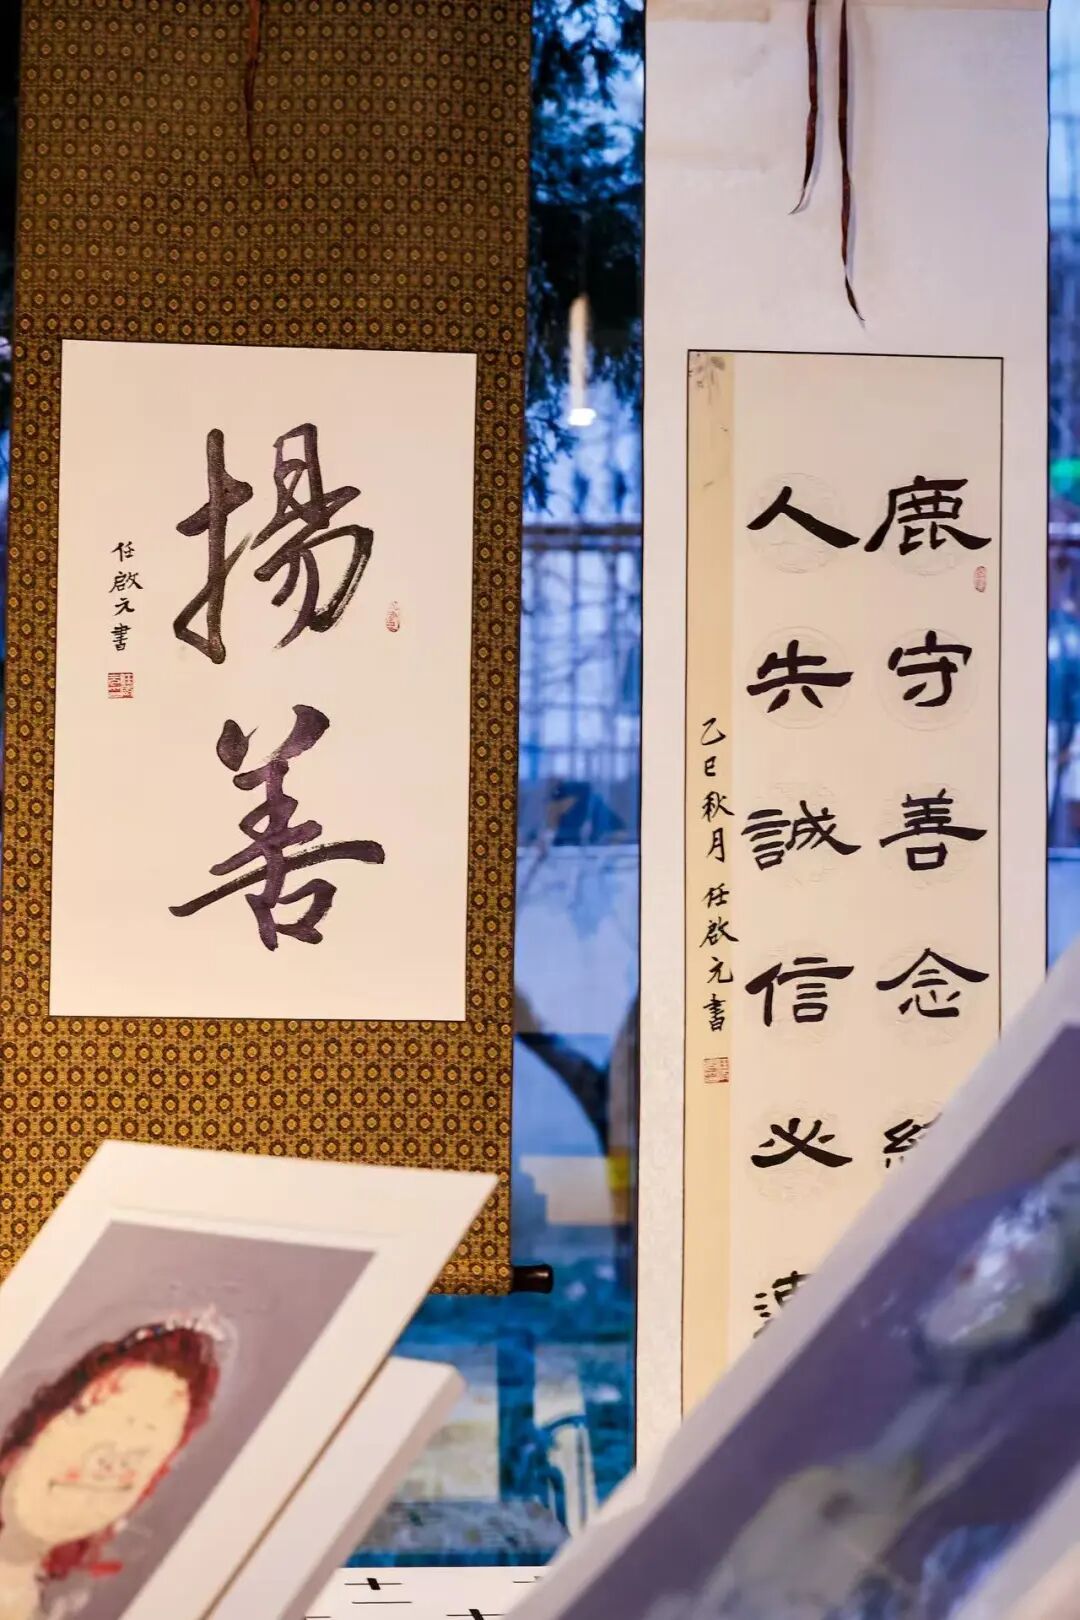 揚善
任啟元書
鹿守善念
人共誠信必
乙巳秋月 任啟元書